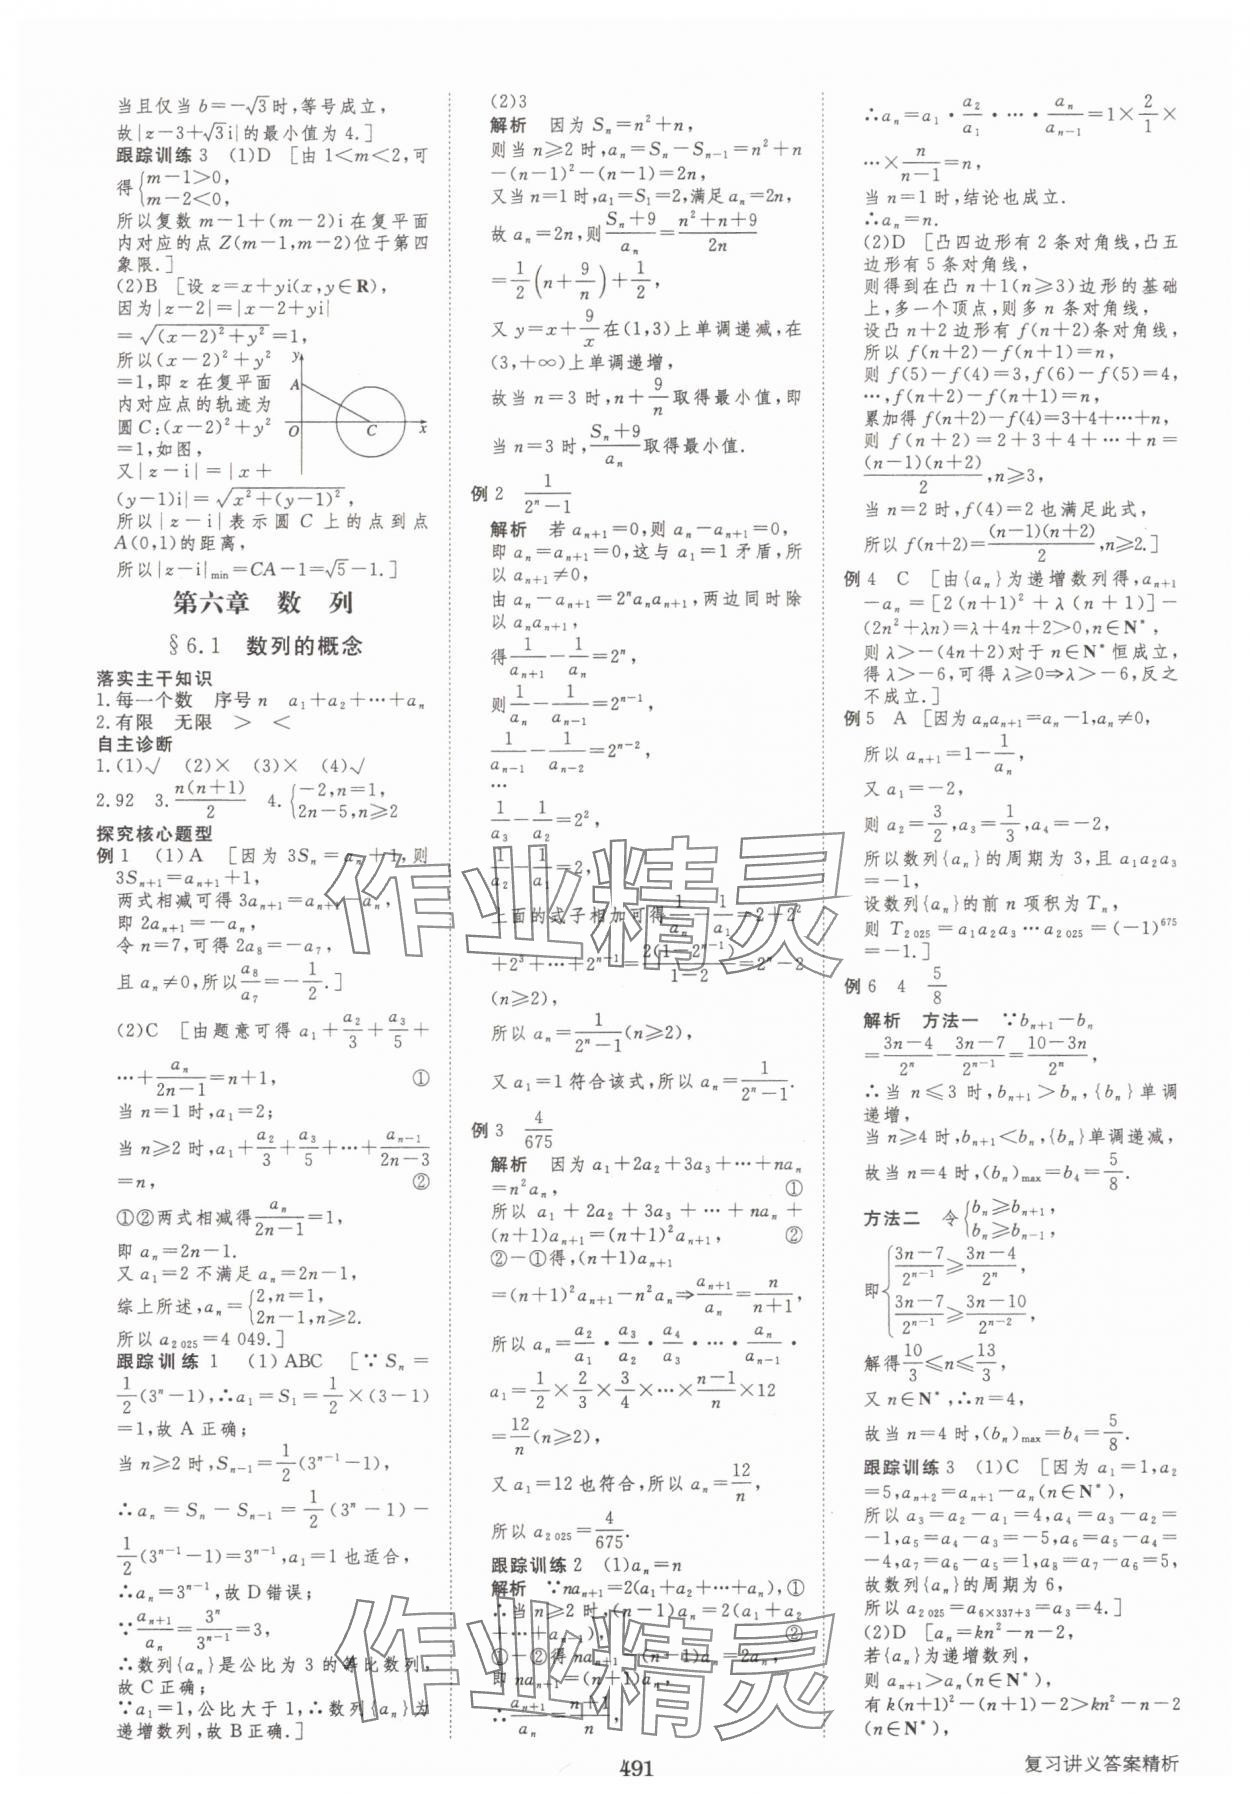 当且仅当 b=-√3时,等号成立,
故|z-3+√3i|的最小值为 4.]
跟踪训练 3 (1)D [由 1<m<2,可
得{m-1>0,
m-2<0,
所以复数 m-1+(m-2)i 在复平面
内对应的点 Z(m-1,m-2)位于第四
象限.]
(2)B [设 z=x+yi(x,y∈R),
因为|z-2|=|x-2+yi|
=√((x-2)²+y²)=1,
所以(x-2)²+y²
=1,即 z 在复平面
内对应点的轨迹为
圆 C:(x-2)²+y²
=1,如图,
又|z-i|=|x+
(y-1)i|=√(x²+(y-1)²),
所以|z-i|表示圆 C 上的点到点
A(0,1)的距离,
所以|z-i|min=CA-1=√5-1.]
y
A
O C x
第六章 数 列
§6.1 数列的概念
落实主干知识
1.每一个数 序号 n a₁+a₂+…+aₙ
2.有限 无限 > <
自主诊断
1.(1)√ (2)× (3)× (4)√
2.92 3.n(n+1)/2 4.{-2,n=1,
2n-5,n≥2
探究核心题型
例 1 (1)A [因为 3Sₙ=aₙ+1,则
3Sₙ₊₁=aₙ₊₁+1,
两式相减可得 3aₙ₊₁=aₙ₊₁-aₙ,
即 2aₙ₊₁=-aₙ,
令 n=7,可得 2a₈=-a₇,
且 aₙ≠0,所以a₈/a₇=-1/2.]
(2)C [由题意可得 a₁+a₂/3+a₃/5+
…+aₙ/(2n-1)=n+1, ①
当 n=1 时,a₁=2;
当 n≥2 时,a₁+a₂/3+a₃/5+…+aₙ₋₁/(2n-3)
=n, ②
①②两式相减得aₙ/(2n-1)=1,
即 aₙ=2n-1.
又 a₁=2 不满足 aₙ=2n-1,
综上所述,aₙ={2,n=1,
2n-1,n≥2.
所以 a₂₀₂₅=4 049.]
跟踪训练 1 (1)ABC [∵Sₙ=
1/2(3ⁿ-1),∴a₁=S₁=1/2×(3-1)
=1,故 A 正确;
当 n≥2 时,Sₙ₋₁=1/2(3ⁿ⁻¹-1),
∴aₙ=Sₙ-Sₙ₋₁=1/2(3ⁿ-1)-
1/2(3ⁿ⁻¹-1)=3ⁿ⁻¹,a₁=1也适合,
∴aₙ=3ⁿ⁻¹,故 D 错误;
∵aₙ₊₁/aₙ=3ⁿ/3ⁿ⁻¹=3,
∴数列{aₙ}是公比为 3 的等比数列,
故 C 正确;
∵a₁=1,公比大于 1,∴数列{aₙ}为
递增数列,故 B正确.]
(2)3
解析 因为 Sₙ=n²+n,
则当 n≥2 时,aₙ=Sₙ-Sₙ₋₁=n²+n
-(n-1)²-(n-1)=2n,
又当 n=1 时,a₁=S₁=2,满足 aₙ=2n,
故 aₙ=2n,则(Sₙ+9)/aₙ=(n²+n+9)/2n
=1/2(n+9/n)+1/2,
又 y=x+9/x在(1,3)上单调递减,在
(3,+∞)上单调递增,
故当 n=3 时,n+9/n取得最小值,即
当 n=3 时,(Sₙ+9)/aₙ取得最小值.
例 2 1/(2ⁿ-1)
解析 若 aₙ₊₁=0,则 aₙ-aₙ₊₁=0,
即 aₙ=aₙ₊₁=0,这与 a₁=1 矛盾,所
以 aₙ₊₁≠0,
由 aₙ-aₙ₊₁=2ⁿaₙaₙ₊₁,两边同时除
以 aₙaₙ₊₁,
得1/aₙ₊₁-1/aₙ=2ⁿ,
则1/aₙ-1/aₙ₋₁=2ⁿ⁻¹,
1/aₙ₋₁-1/aₙ₋₂=2ⁿ⁻²,
…
1/a₃-1/a₂=2²,
1/a₂-1/a₁=2,
上面的式子相加可得1/aₙ-1/a₁=2+2²
+2³+…+2ⁿ⁻¹=2(1-2ⁿ⁻¹)/(1-2)=2ⁿ-2
(n≥2),
所以 aₙ=1/(2ⁿ-1)(n≥2),
又 a₁=1 符合该式,所以 aₙ=1/(2ⁿ-1).
例 3 4/675
解析 因为 a₁+2a₂+3a₃+…+naₙ
=n²aₙ, ①
所以 a₁+2a₂+3a₃+…+naₙ+
(n+1)aₙ₊₁=(n+1)²aₙ₊₁, ②
②-①得,(n+1)aₙ₊₁
=(n+1)²aₙ₊₁-n²aₙ⇒aₙ₊₁/aₙ=n/(n+1),
所以 aₙ=a₂/a₁·a₃/a₂·a₄/a₃·…·aₙ/aₙ₋₁·
a₁=1/2×2/3×3/4×…×(n-1)/n×12
=12/n(n≥2),
又 a₁=12 也符合,所以 aₙ=12/n,
所以 a₂₀₂₅=4/675.
跟踪训练 2 (1)aₙ=n
解析 ∵naₙ₊₁=2(a₁+a₂+…+aₙ),①
∴当 n≥2 时,(n-1)aₙ=2(a₁+a₂
+…+aₙ₋₁), ②
①-②得 naₙ₊₁-(n-1)aₙ=2aₙ,
即 naₙ₊₁=(n+1)aₙ,
∴aₙ₊₁/aₙ=(n+1)/n,
∴aₙ=a₁·a₂/a₁·…·aₙ/aₙ₋₁=1×2/1×
…×n/(n-1)=n,
当 n=1 时,结论也成立.
∴aₙ=n.
(2)D [凸四边形有 2 条对角线,凸五
边形有 5 条对角线,
则得到在凸 n+1(n≥3)边形的基础
上,多一个顶点,则多 n 条对角线,
设凸 n+2 边形有 f(n+2)条对角线,
所以 f(n+2)-f(n+1)=n,
则 f(5)-f(4)=3,f(6)-f(5)=4,
…,f(n+2)-f(n+1)=n,
累加得 f(n+2)-f(4)=3+4+…+n,
则 f(n+2)=2+3+4+…+n=
(n-1)(n+2)/2,n≥3,
当 n=2 时,f(4)=2 也满足此式,
所以 f(n+2)=(n-1)(n+2)/2,n≥2.]
例 4 C [由{aₙ}为递增数列得,aₙ₊₁
-aₙ=[2(n+1)²+λ(n+1)]-
(2n²+λn)=λ+4n+2>0,n∈N*,
则 λ>-(4n+2)对于 n∈N*恒成立,
得 λ>-6,可得 λ≥0⇒λ>-6,反之
不成立.]
例 5 A [因为 aₙaₙ₊₁=aₙ-1,aₙ≠0,
所以 aₙ₊₁=1-1/aₙ,
又 a₁=-2,
则 a₂=3/2,a₃=1/3,a₄=-2,
所以数列{aₙ}的周期为 3,且 a₁a₂a₃
=-1,
设数列{aₙ}的前 n 项积为 Tₙ,
则 T₂₀₂₅=a₁a₂a₃…a₂₀₂₅=(-1)⁶⁷⁵
=-1.]
例 6 4 5/8
解析 方法一 ∵bₙ₊₁-bₙ
=(3n-4)/2ⁿ-(3n-7)/2ⁿ⁻¹=(10-3n)/2ⁿ,
∴当 n≤3 时,bₙ₊₁>bₙ,{bₙ}单调
递增,
当 n≥4 时,bₙ₊₁<bₙ,{bₙ}单调递减,
故当 n=4 时,(bₙ)max=b₄=5/8.
方法二 令{bₙ≥bₙ₊₁,
bₙ≥bₙ₋₁,
即{(3n-7)/2ⁿ⁻¹≥(3n-4)/2ⁿ,
(3n-7)/2ⁿ⁻¹≥(3n-10)/2ⁿ⁻²,
解得10/3≤n≤13/3,
又 n∈N*,∴n=4,
故当 n=4 时,(bₙ)max=b₄=5/8.
跟踪训练 3 (1)C [因为 a₁=1,a₂
=5,aₙ₊₂=aₙ₊₁-aₙ(n∈N*),
所以 a₃=a₂-a₁=4,a₄=a₃-a₂=
-1,a₅=a₄-a₃=-5,a₆=a₅-a₄=
-4,a₇=a₆-a₅=1,a₈=a₇-a₆=5,
故数列{aₙ}的周期为 6,
所以 a₂₀₂₅=a₆ₓ₃₃₇₊₃=a₃=4.]
(2)D [aₙ=kn²-n-2,
若{aₙ}为递增数列,
则 aₙ₊₁>aₙ(n∈N*),
有 k(n+1)²-(n+1)-2>kn²-n-2
(n∈N*),
491
复习讲义答案精析
作业精灵
作业精灵